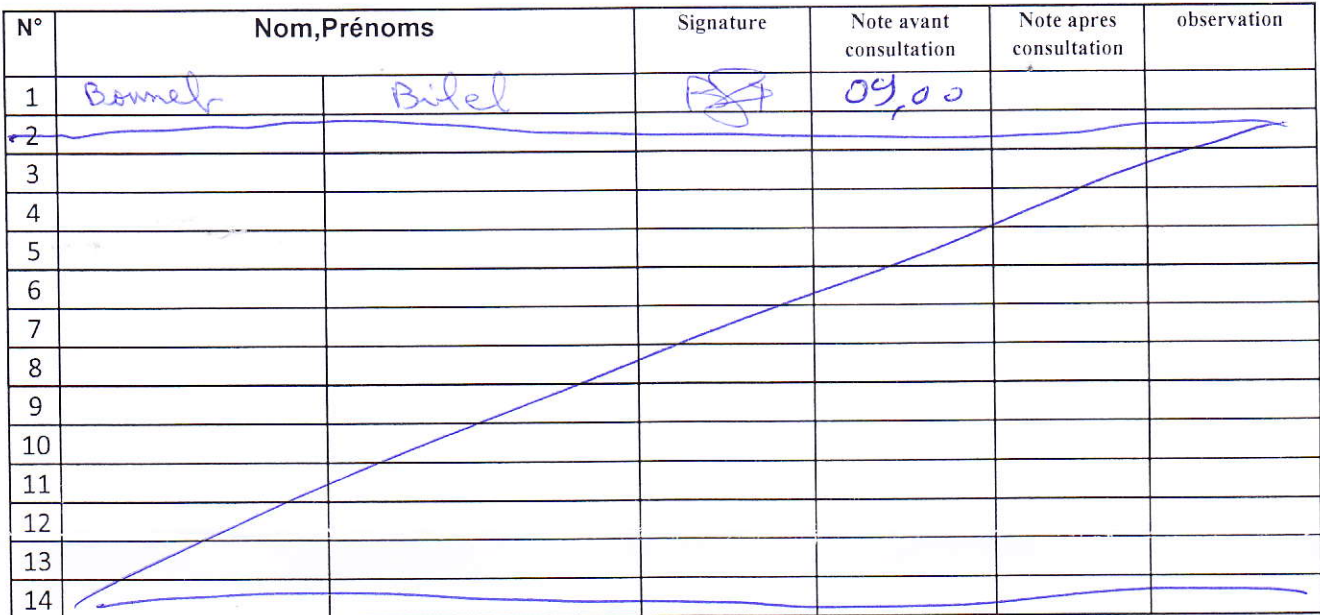 N° Nom,Prénoms Signature Note avant consultation Note apres consultation observation
1 Bilel 09,00
2
3
4
5
6
7
8
9
10
11
12
13
14